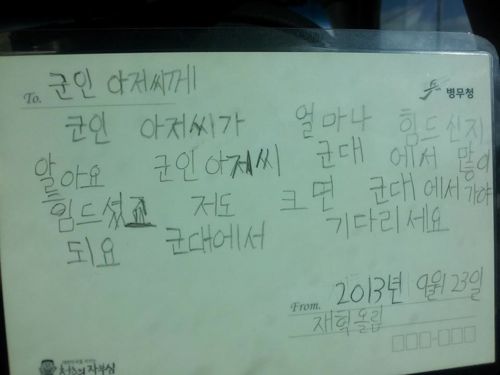 To. 군인 아저씨께
병무청
군인 아저씨가 얼마나 힘드신지
알아요 군인아저씨 군대 에서 많이
힘드셨죠 저도 크면 군대에서가야
되요 군대에서 기다리세요
From. 2013년 9월 23일
재혁올림
대한민국을 지키는
청춘의 자부심